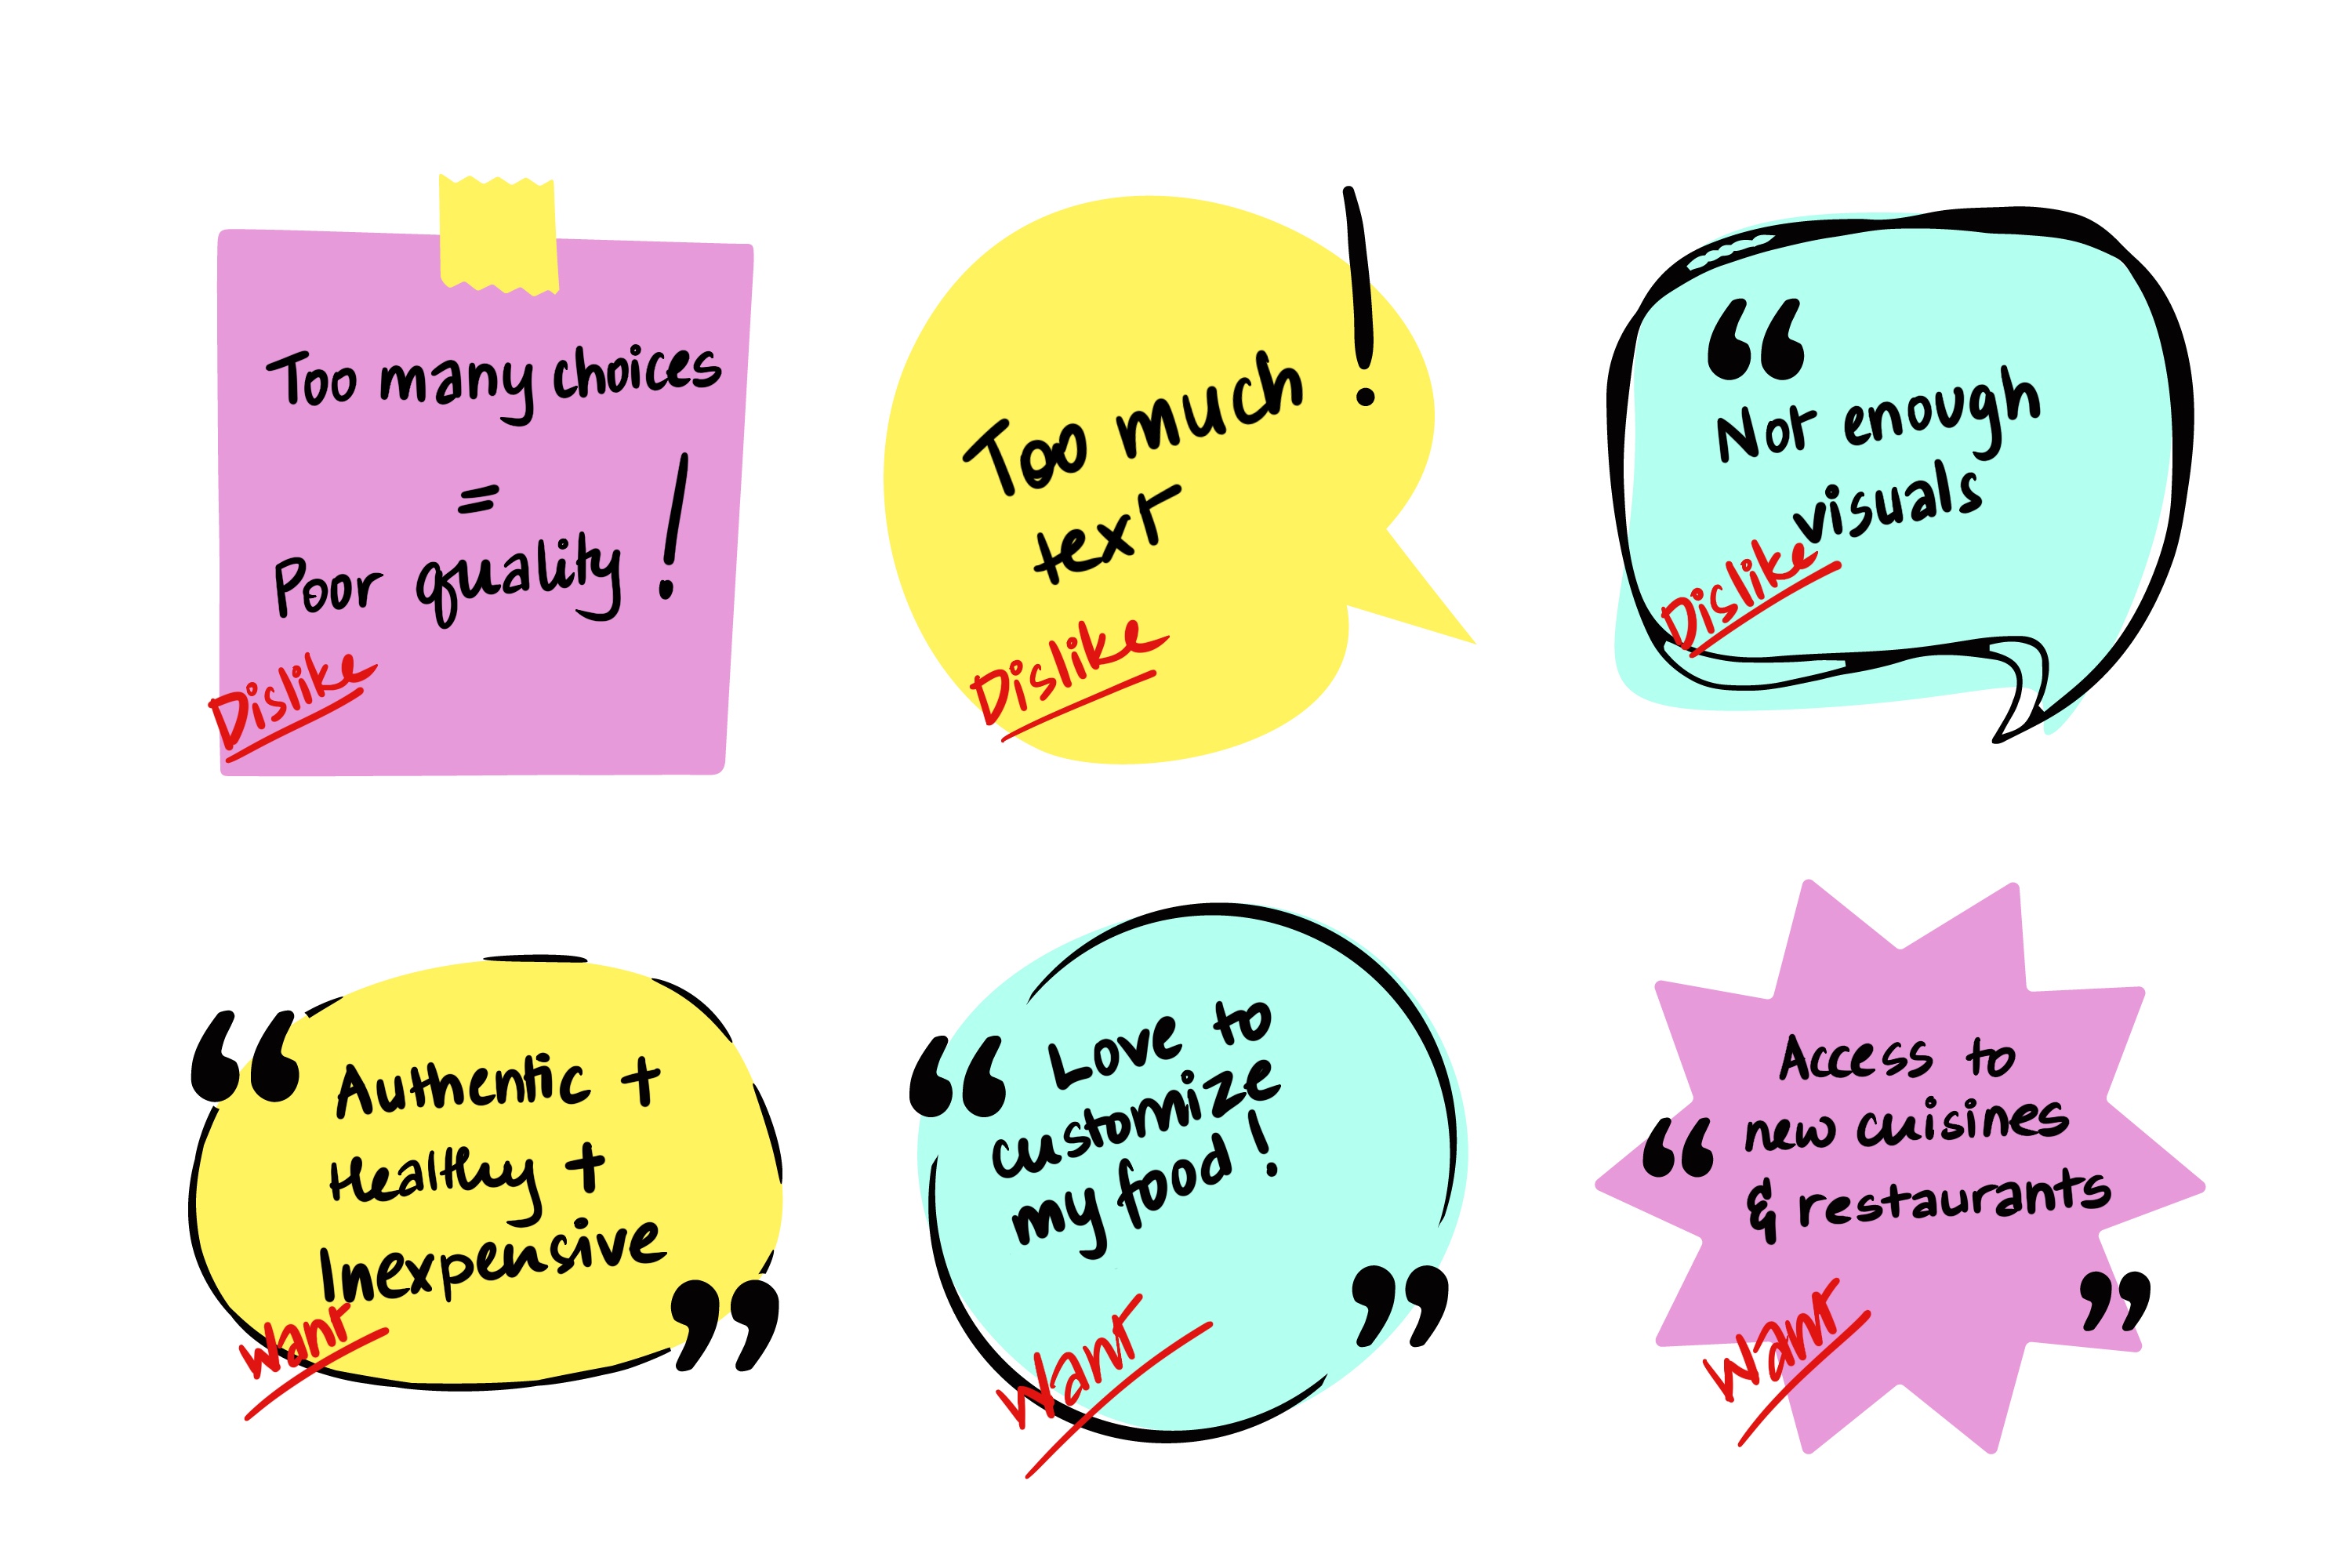 Too many choices
=
Poor quality !
Dislike
Too much !
text
Dislike
“ Not enough
visuals
Dislike
“ Authentic +
Healthy +
Inexpensive ”
Want
“ Love to
customize
my food !
”
Want
Access to
“ new cuisines
& restaurants
”
Want